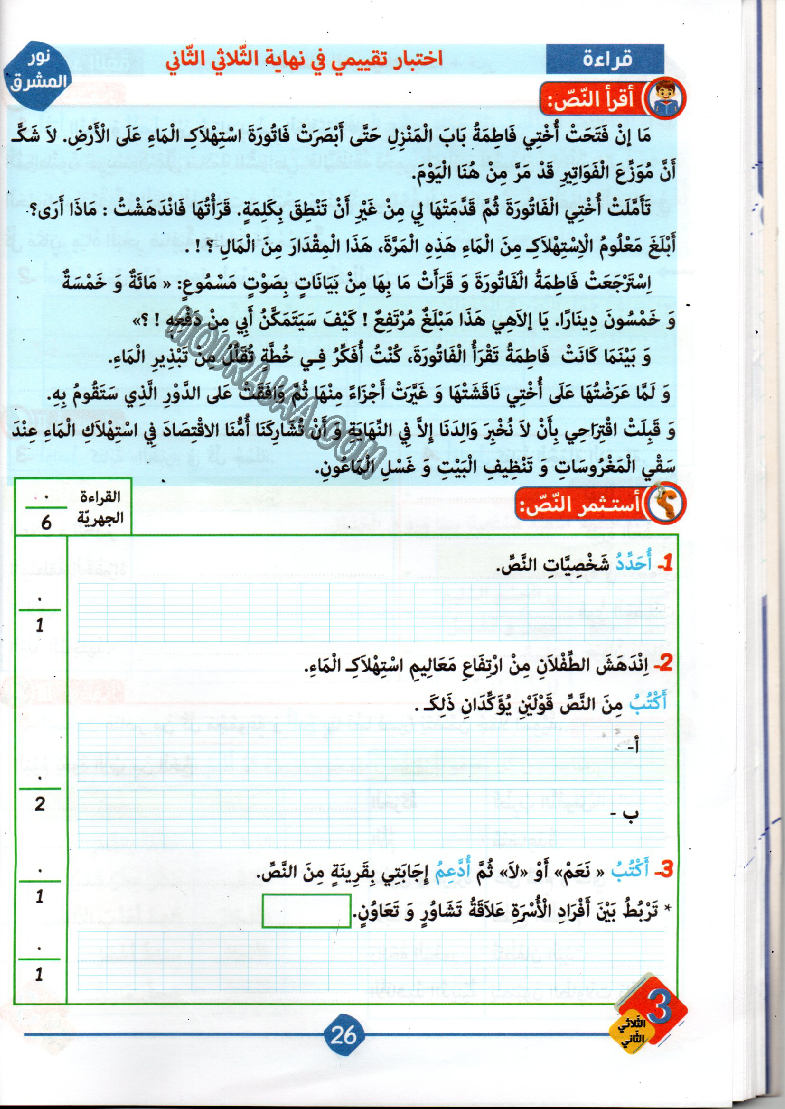 نور
المشرق
قراءة
اختبار تقييمي في نهاية الثّلاثي الثّاني
أقرأ النّصّ:
مَا إنْ فَتَحَتْ أُخْتِي فَاطِمَةُ بَابَ الْمَنْزِلِ حَتَّى أَبْصَرَتْ فَاتُورَةَ اسْتِهْلاَكِـ الْمَاءِ عَلَى الْأَرْضِ. لاَ شَكَّـ
أَنَّ مُوَزِّعَ الْفَوَاتِيرِ قَدْ مَرَّ مِنْ هُنَا الْيَوْمَ.
تَأَمَّلَتْ أُخْتِي الْفَاتُورَةَ ثُمَّ قَدَّمَتْهَا لِي مِنْ غَيْرِ أَنْ تَنْطِقَ بِكَلِمَةٍ. قَرَأْتُهَا فَانْدَهَشْتُ : مَاذَا أَرَى؟
أَبْلَغَ مَعْلُومُ الْاِسْتِهْلاَكِـ مِنَ الْمَاءِ هَذِهِ الْمَرَّةَ، هَذَا الْمِقْدَارَ مِنَ الْمَالِ ؟ ! .
اِسْتَرْجَعَتْ فَاطِمَةُ الْفَاتُورَةَ وَ قَرَأَتْ مَا بِهَا مِنْ بَيَانَاتٍ بِصَوْتٍ مَسْمُوعٍ: « مَائَةٌ وَ خَمْسَةٌ
وَ خَمْسُونَ دِينَارًا. يَا إِلاَهِي هَذَا مَبْلَغٌ مُرْتَفِعٌ ! كَيْفَ سَيَتَمَكَّنُ أَبِي مِنْ دَفْعِهِ ! ؟»
وَ بَيْنَمَا كَانَتْ فَاطِمَةُ تَقْرَأُ الْفَاتُورَةَ، كُنْتُ أُفَكِّرُ فِـي خُطَّةٍ تُقَلِّلُ مِنْ تَبْذِيرِ الْمَاءِ.
وَ لَمَّا عَرَضْتُهَا عَلَى أُخْتِي نَاقَشَتْهَا وَ غَيَّرَتْ أَجْزَاءً مِنْهَا ثُمَّ وَافَقَتْ عَلى الدَّوْرِ الَّذِي سَتَقُومُ بِهِ.
وَ قَبِلَتْ اقْتِرَاحِي بِأَنْ لاَ نُخْبِرَ وَالِدَنَا إِلاَّ فِي النِّهَايَةِ وَ أَنْ تُشَارِكَنَا أُمُّنَا الاقْتِصَادَ فِي اسْتِهْلاَكِ الْمَاءِ عِنْدَ
سَقْيِ الْمَغْرُوسَاتِ وَ تَنْظِيفِ الْبَيْتِ وَ غَسْلِ الْمَاعُونِ.
MOURAJAA.COM
أستثمر النّصّ:
القراءة
الجهريّة
6
1- أُحَدِّدُ شَخْصِيَّاتِ النَّصِّ.
1
2- اِنْدَهَشَ الطِّفْلاَنِ مِنْ ارْتِفَاعِ مَعَالِيمِ اسْتِهْلاَكِـ الْمَاءِ.
أَكْتُبُ مِنَ النَّصِّ قَوْلَيْنِ يُؤَكِّدَانِ ذَلِكَـ .
أ-
2
ب -
3- أَكْتُبُ « نَعَمْ» أَوْ «لاَ» ثُمَّ أُدَّعِمُ إِجَابَتِي بِقَرِينَةٍ مِنَ النَّصِّ.
1
* تَرْبُطُ بَيْنَ أَفْرَادِ الْأُسْرَةِ عَلاَقَةُ تَشَاوُرٍ وَ تَعَاوُنٍ.
1
3
الثّلاثي
الثّاني
26